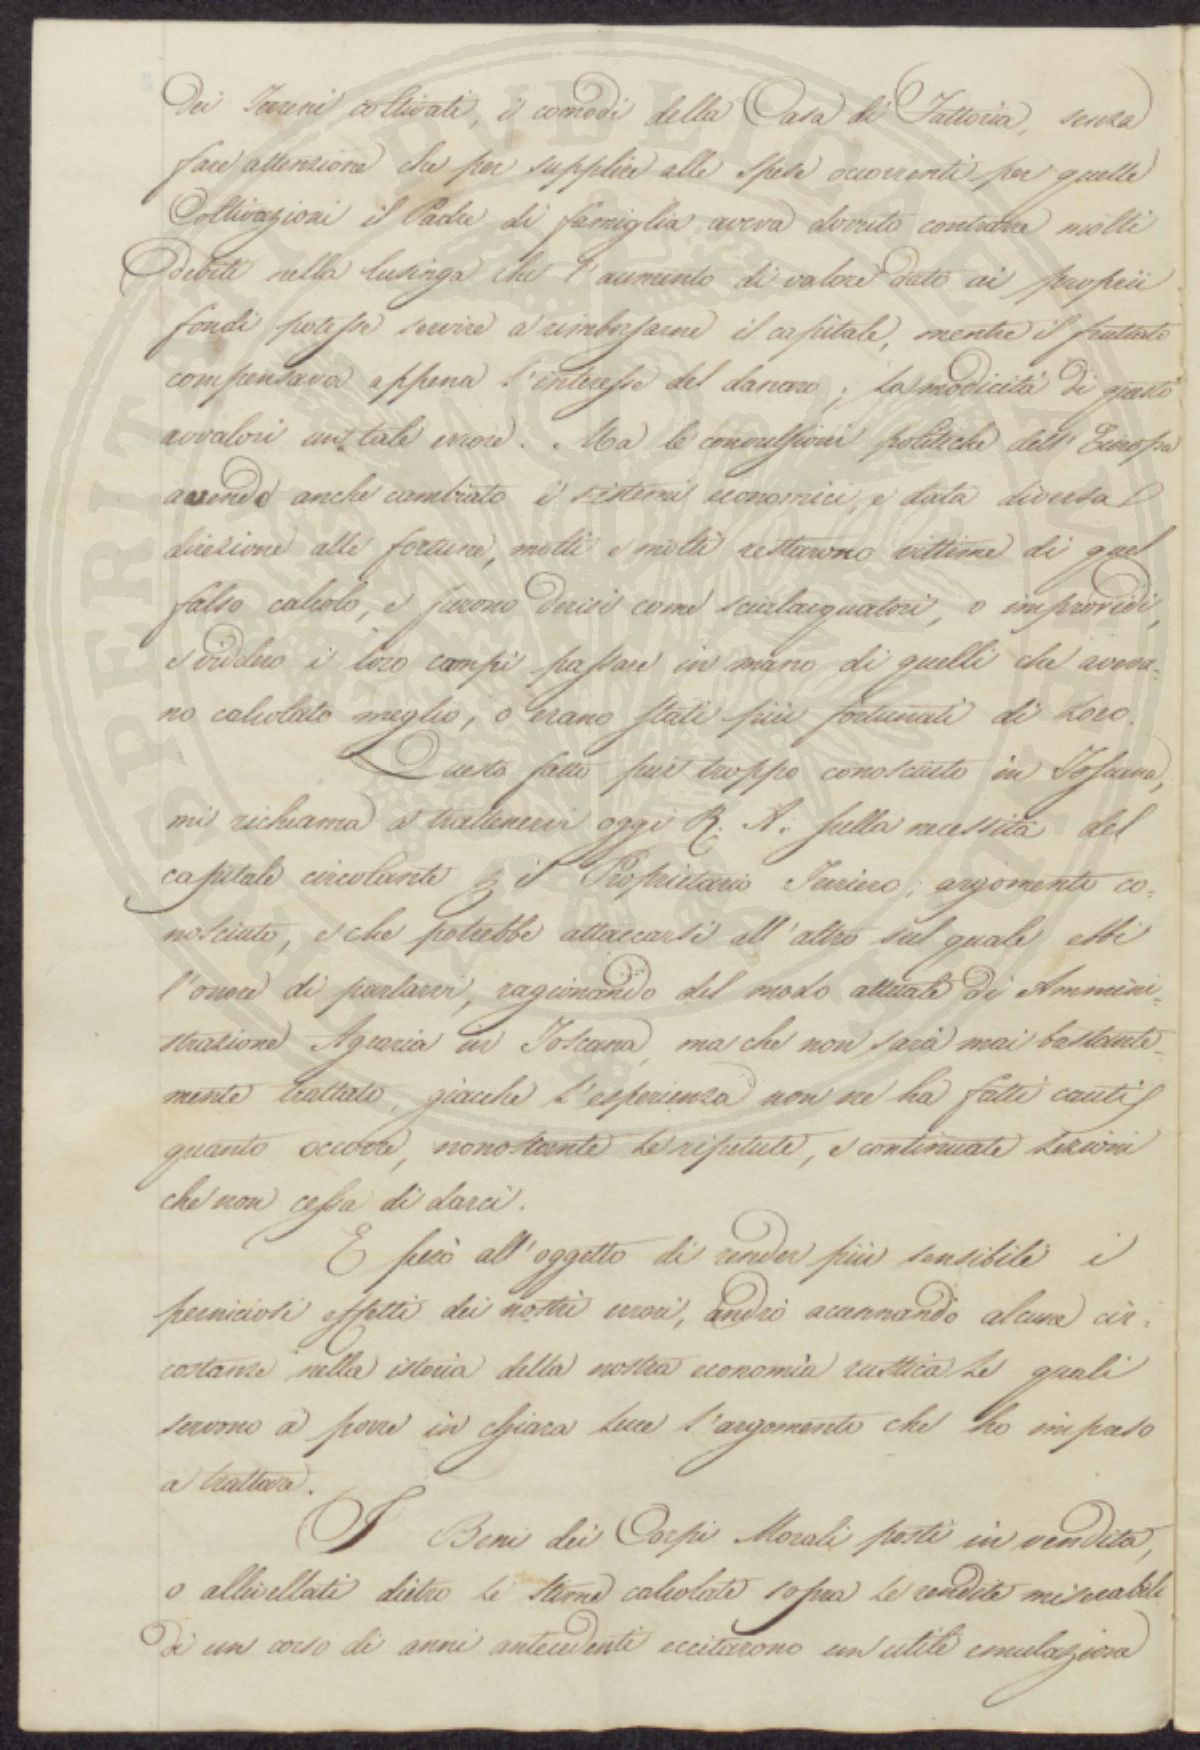 Dei Terreni coltivati, i comodi della Casa di Fattoria, senza
fare attenzione che per supplire alle spese occorrenti per quelle
Coltivazioni il Padre di famiglia aveva dovuto contrarre molti
Debiti nella lusinga che l'aumento di valore dato ai proprii
fondi potesse servire a rimborsarne il capitale, mentre il fruttato
compensava appena l'interesse del danaro; la modicità di questo
avvalorì un tale errore. Ma le convulsioni politiche dell'Europa
avendo anche cambiato i sistemi economici, e data diversa
direzione alle fortune, molti e molti restarono vittime di quel
falso calcolo, e furono derisi come scialacquatori, o improvidi,
e viddero i loro campi passare in mano di quelli che aveva-
no calcolato meglio, o erano stati più fortunati di Loro.
Questo fatto pur troppo conosciuto in Toscana,
mi richiama a trattenervi oggi R. A. sulla necessità del
capitale circolante p il Proprietario Terriero; argomento co-
nosciuto, e che potrebbe attaccarsi all'altro sul quale ebbi
l'onore di parlarvi, ragionando del modo attuale di Ammini-
strazione Agraria in Toscana, ma che non sarà mai bastante-
mente trattato, giacchè l'esperienza non ne ha fatti cauti
quanto occorre, nonostante le ripetute, e continuate lezioni
che non cessa di darci.
E però all'oggetto di render più sensibile i
perniciosi effetti dei nostri errori, andrò accennando alcune cir-
costanze nella istoria della nostra economia rustica le quali
servono a porre in chiara luce l'argomento che ho impreso
a trattare.
I Beni dei Corpi Morali posti in vendita,
o allivellati dietro le stime calcolate sopra le rendite miserabili
di un corso di anni antecedenti eccitarono un'utile emulazione
PROSPERITATI PUBLICAE AUGENDAE